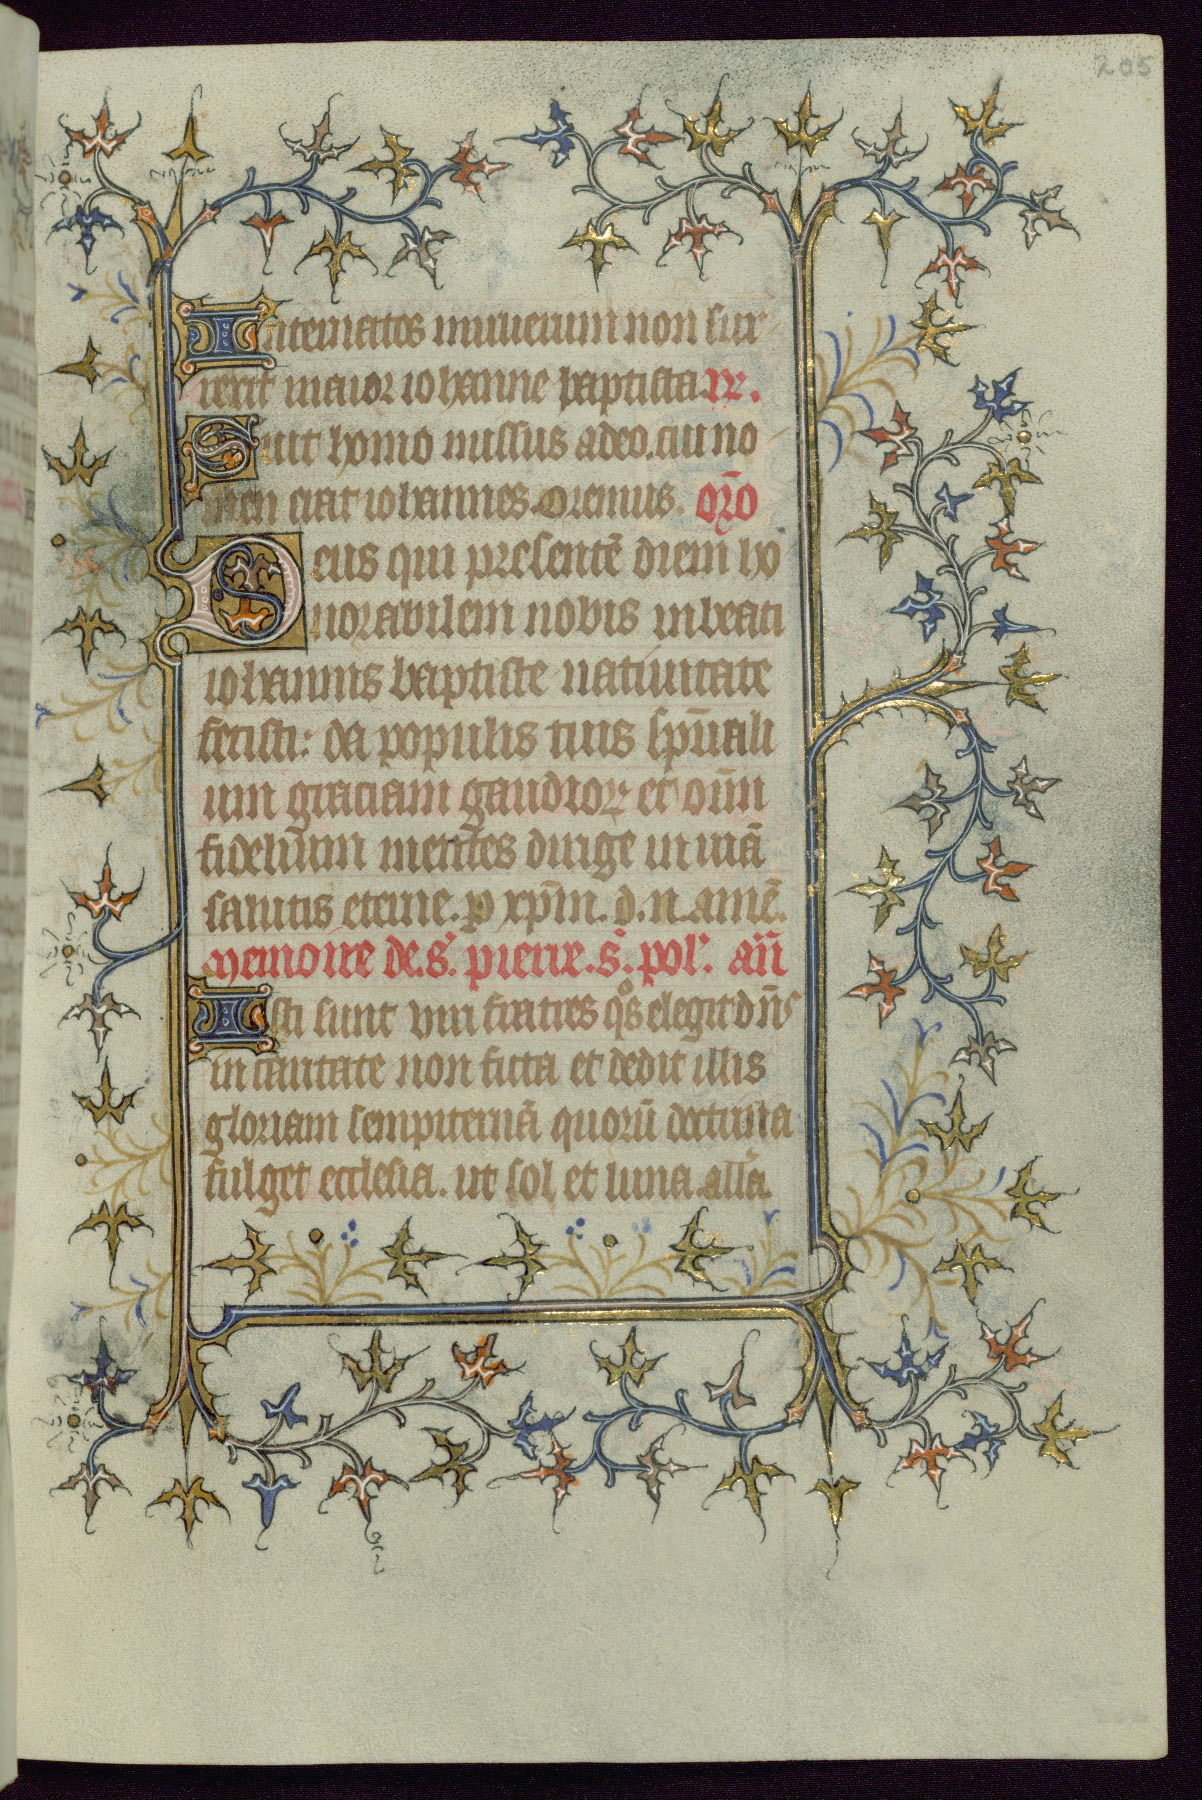 205
Inter natos mulierum non sur
rexit maior iohanne baptista. vr.
Fuit homo missus a deo. cui no
men erat iohannes. Oremus. or̃o
Deus qui presentẽ diem ho
norabilem nobis in beati
iohannis baptiste natiuitate
fecisti: da populis tuis sp̃uali
um graciam gaudioꝝ et om̃n
fidelium mentes dirige in uiã
salutis eterne. p xp̃m. d. n. amẽ.
Memoire de. s. pierre. s. pol. añ
Isti sunt uiri fratres qͦs elegit dñs
in caritate non ficta et dedit illis
gloriam sempiternã quorũ doctrina
fulget ecclesia. ut sol et luna. all'a.